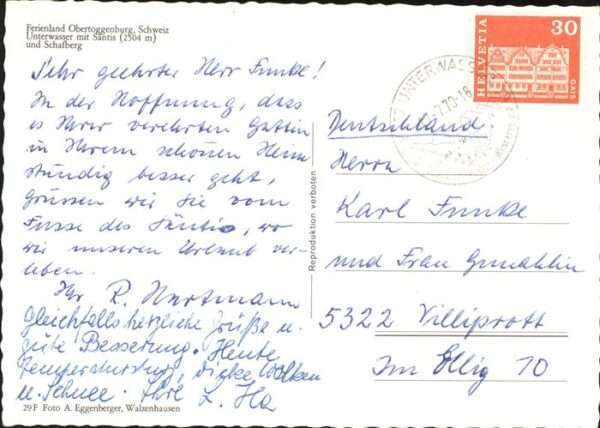 Ferienland Obertoggenburg, Schweiz
Unterwasser mit Säntis (2504 m)
und Schafberg
Sehr geehrter Herr Funke!
In der Hoffnung, dass
es Ihrer verehrten Gattin
in Ihrem schönen Heim
ständig besser geht,
grüssen wir Sie vom
Fusse des Säntis, wo
wir unseren Urlaub ver-
leben.
Ihr R. Hartmann
Gleichfalls herzliche Grüße u.
gute Besserung. Heute
Temperatursturz, dicke Wolken
u. Schnee. Ihre L. Ha
29 F Foto A. Eggenberger, Walzenhausen
Reproduktion verboten
UNTERWASSER
70-18
HELVETIA
30
GAIS
Deutschland.
Herrn
Karl Funke
und Frau Gemahlin
5322 Villiprott
Im Ellig 10